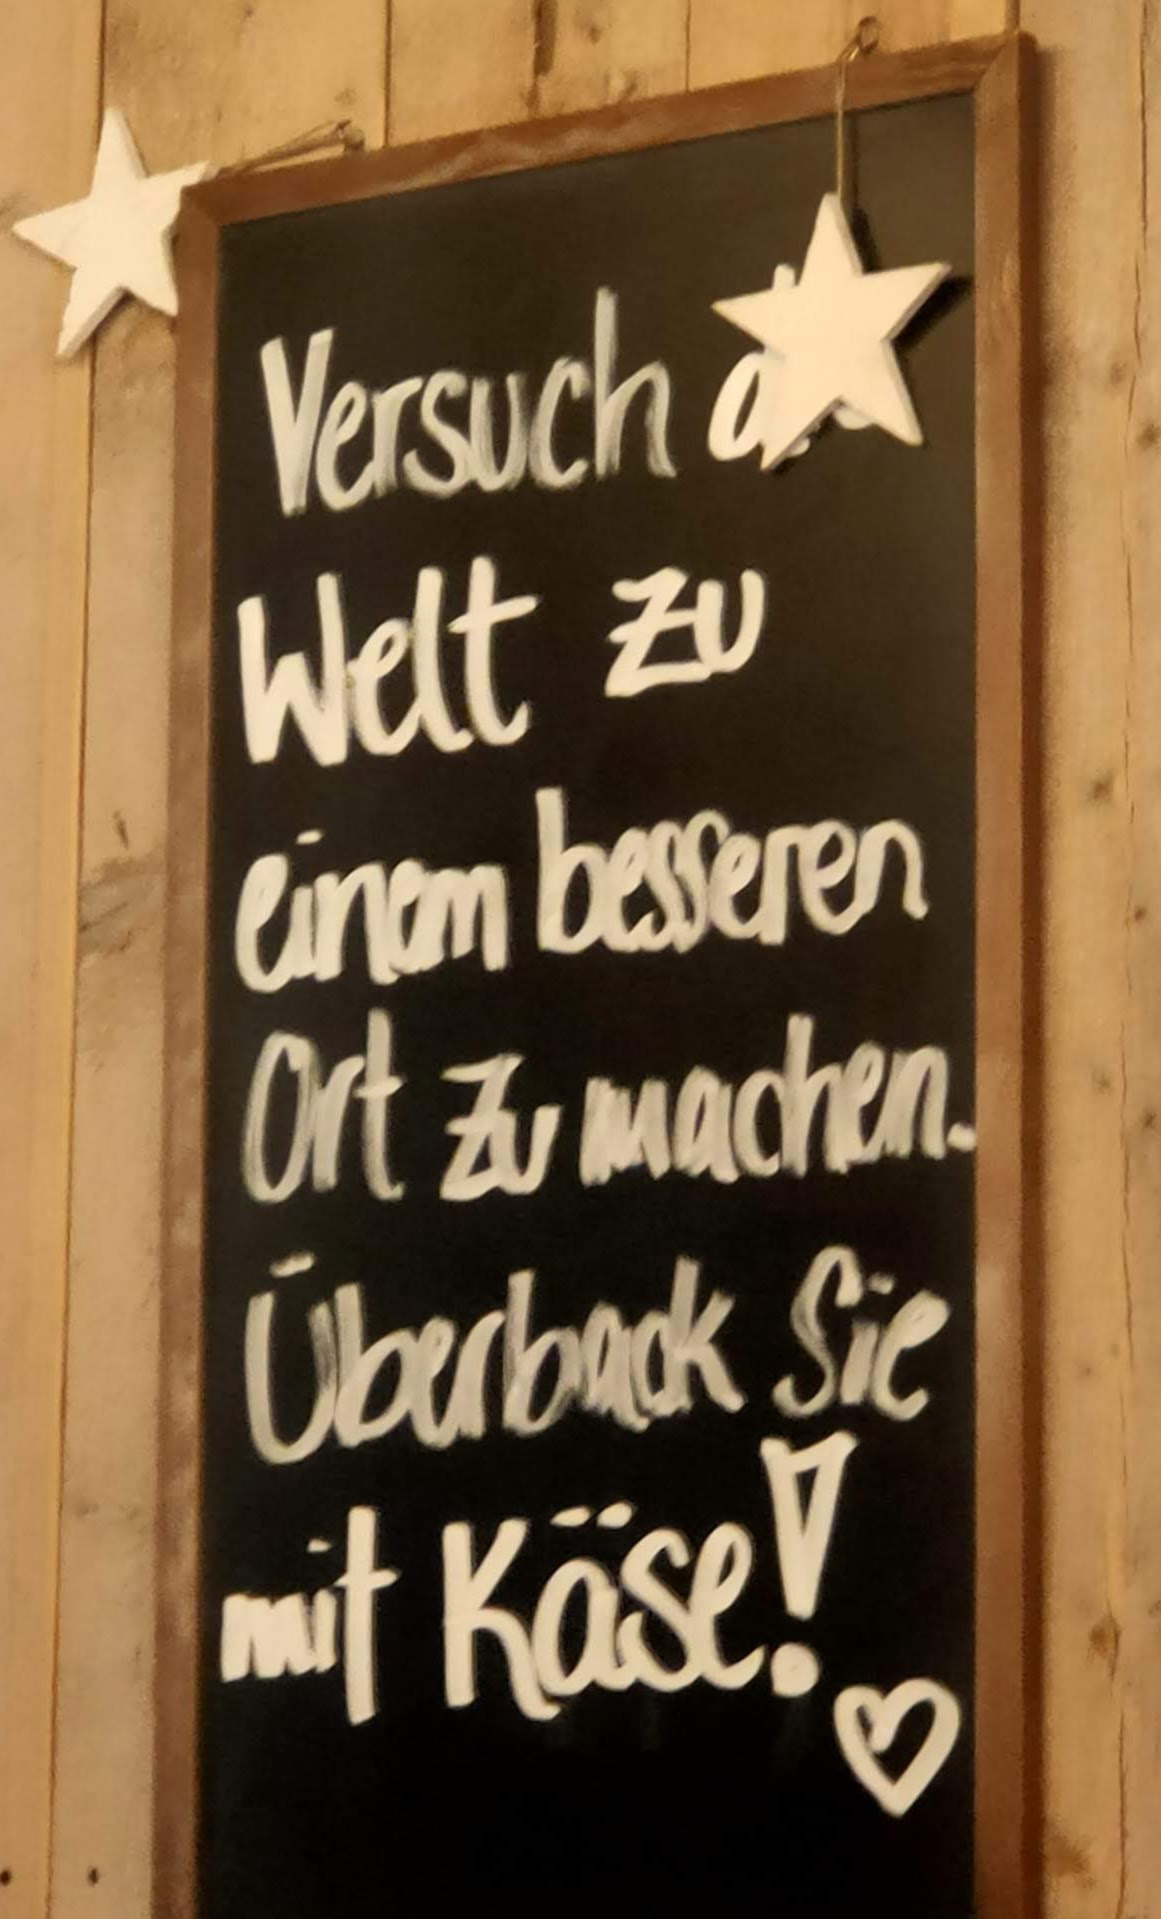 Versuch
Welt zu
einem besseren
Ort zu machen.
Überback Sie
mit Käse!